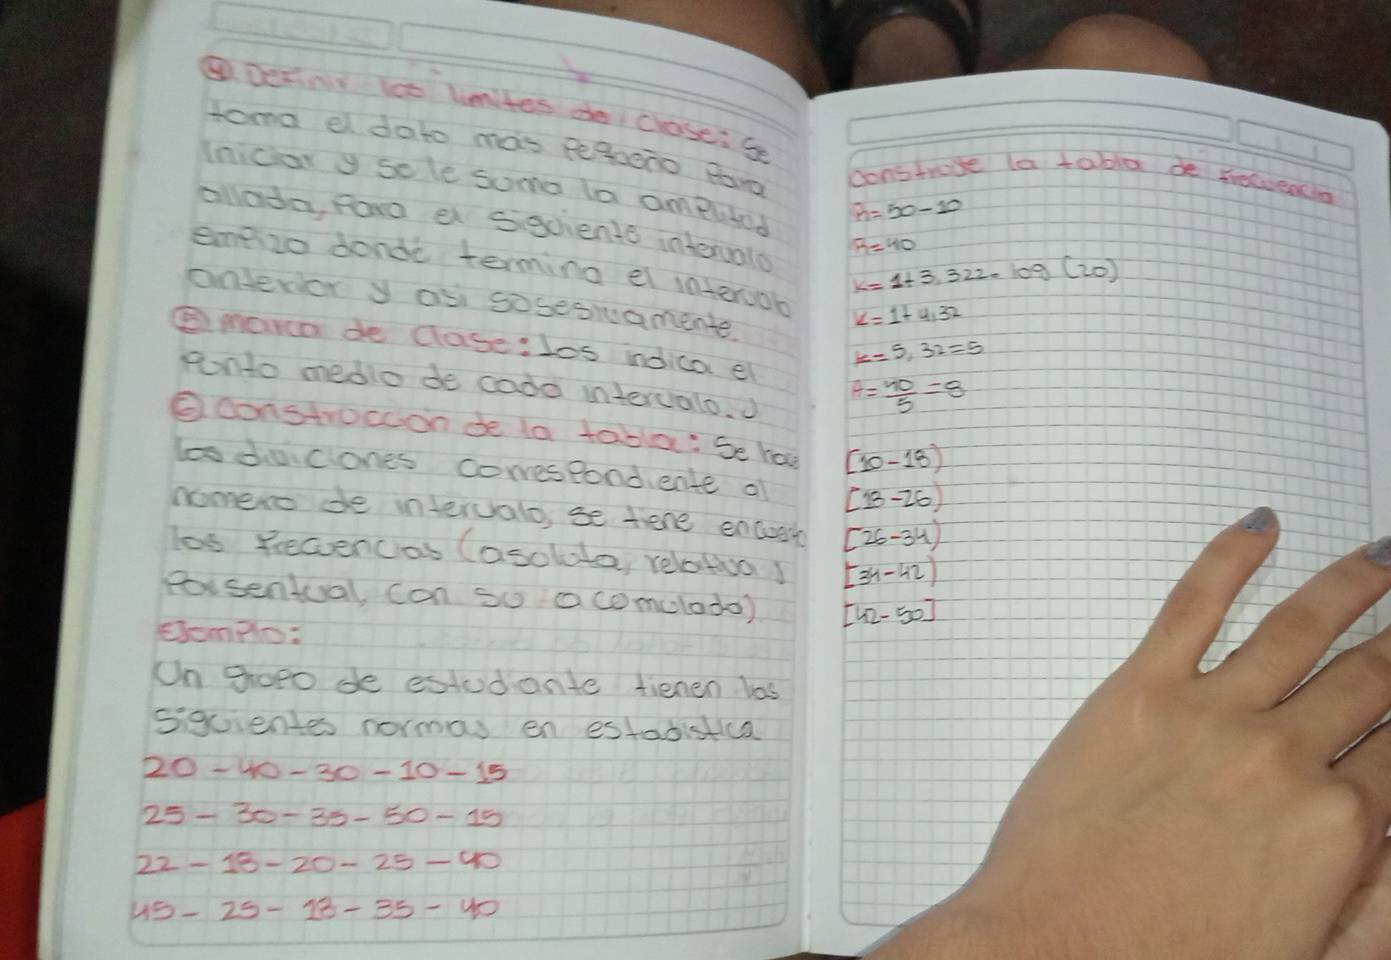 ④ Definir los limites de clase: Se
toma el dato más pequeño para
iniciar y se le suma la amplitud
allada, para el siguiente intervalo
empizo donde termina el intervalo
anterior y asi sosesivamente.
⑤ marca de clase: los indica el
Punto medio de cada intervalo.
⑥ construccion de la tabla: Se hace
los diviciones correspondiente al
numero de intervalo, se tiene encuenta
los frecuencias (asoluta, relativa y
Porsentual, con su acomulada)
Ejemplo:
Un grupo de estudante tienen las
siguientes normas en estadistica
20 - 40 - 30 - 10 - 15
25 - 30 - 35 - 50 - 15
22 - 18 - 20 - 25 - 40
45 - 25 - 18 - 35 - 40
construye la tabla de frecuencia
R = 50 - 10
R = 40
K = 1 + 3,322 . log (20)
K = 1 + 4,32
K = 5,32 = 5
A = 40/5 = 8
[10 - 18)
[18 - 26)
[26 - 34)
[34 - 42)
[42 - 50]